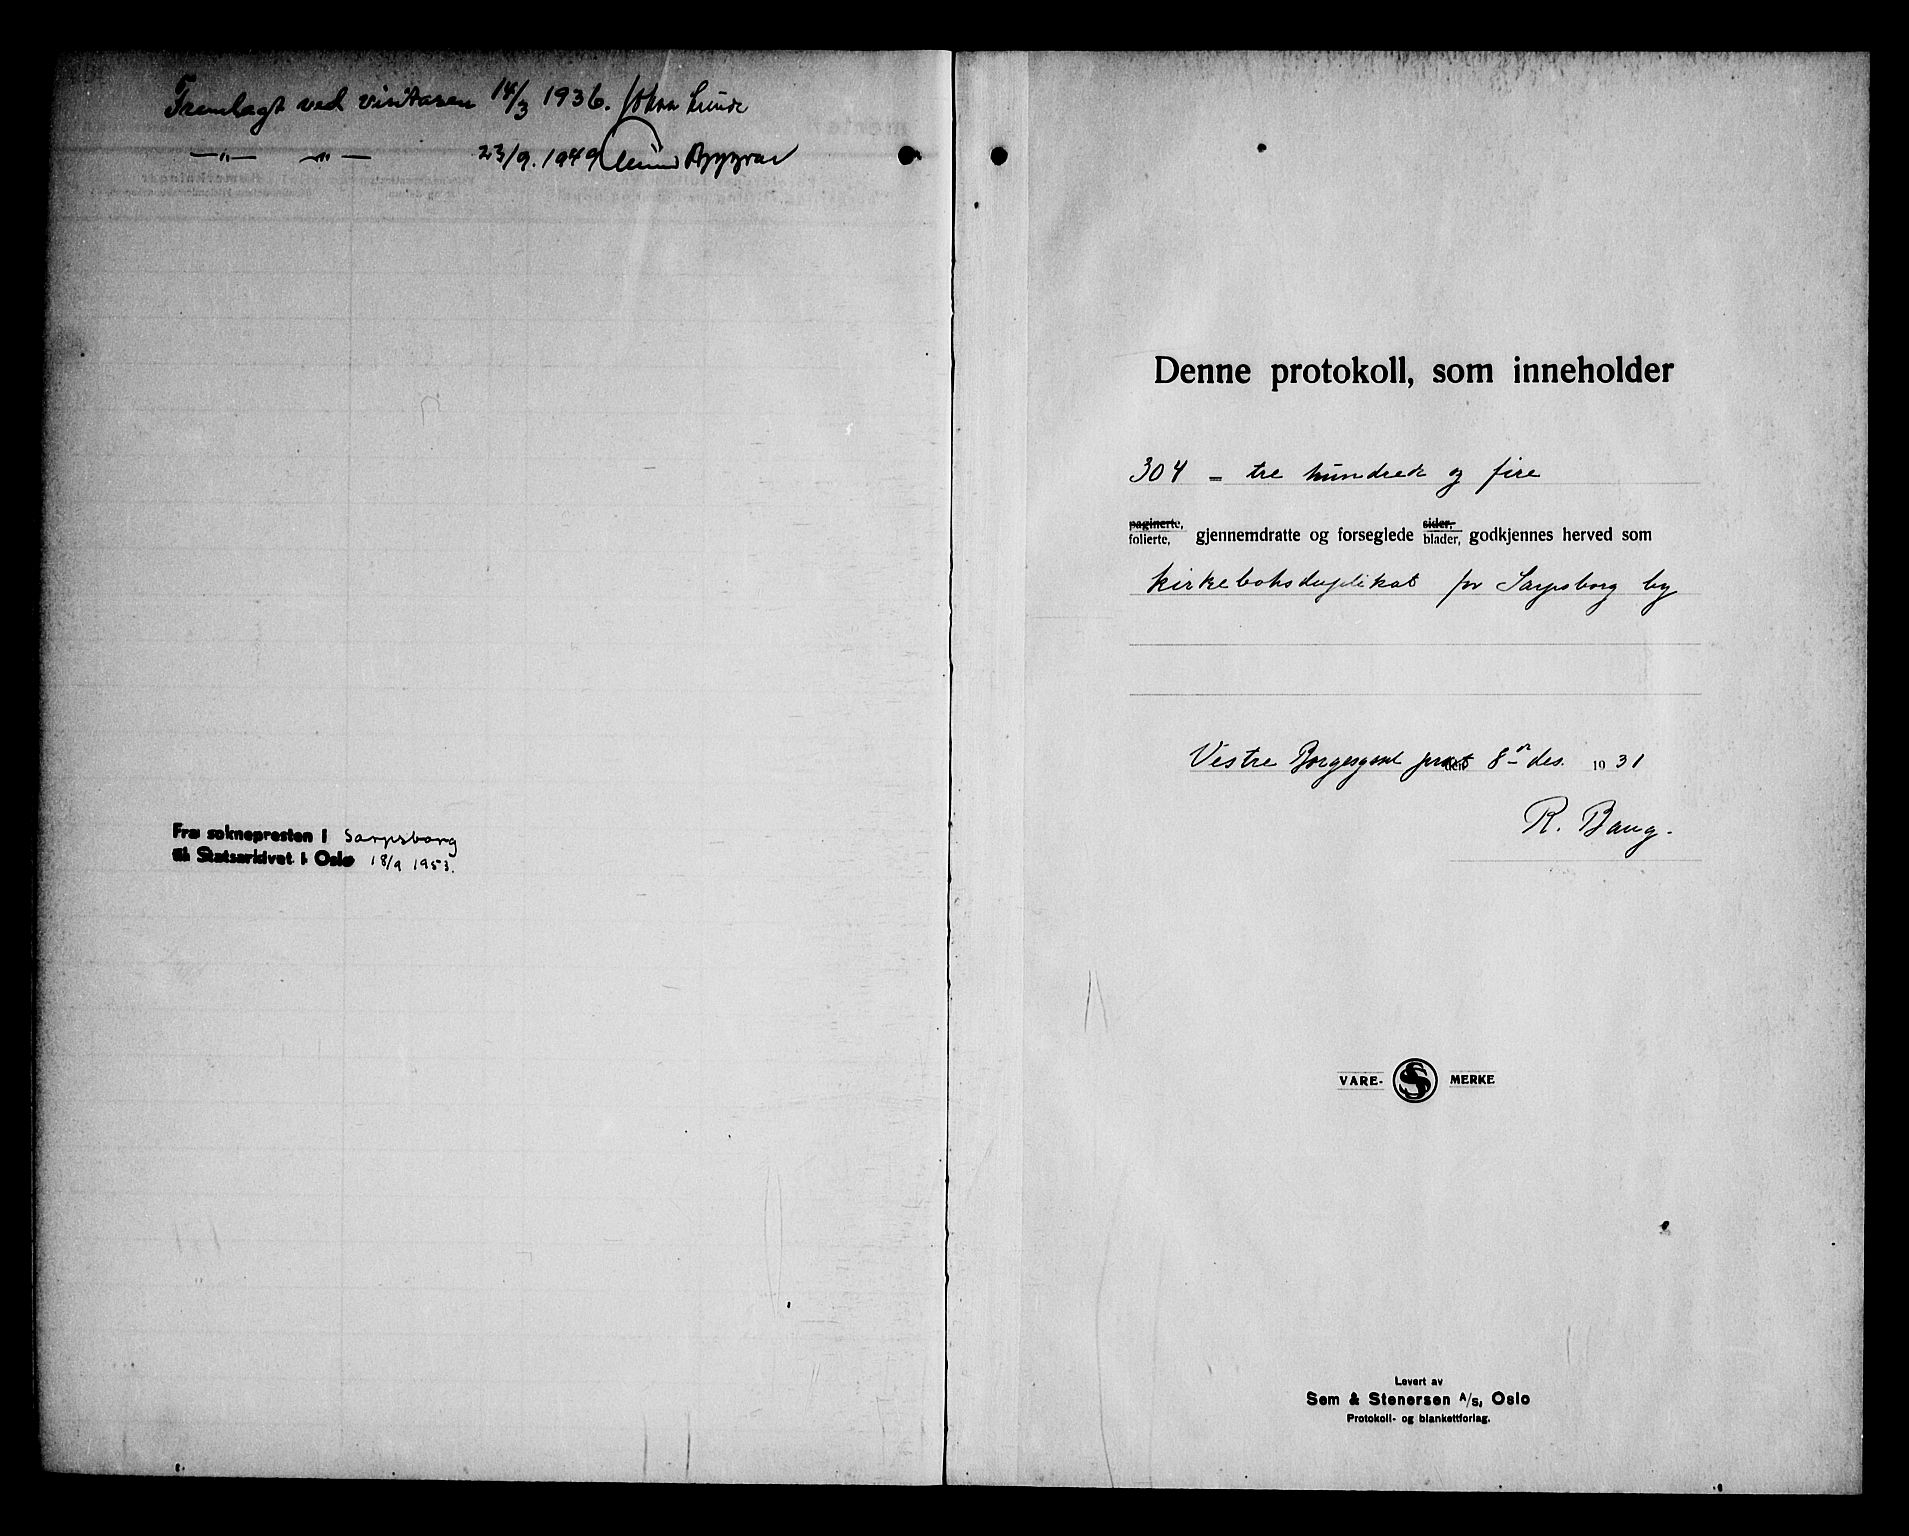 Fremlagt ved visitasen 14/3 1936. Johan Lunde
—"— —"— 23/9. 1949
Fra soknepresten i Sarpsborg
til Statsarkivet i Oslo 18/9 1953.
Denne protokoll, som inneholder
304 = tre hundrede og fire
paginerte, folierte, gjennemdratte og forseglede sider, blader, godkjennes herved som
kirkeboksduplikat for Sarpsborg by
Vestre Borgesyssel prosti den 8de des. 1931
R. Bang.
VARE- MERKE
Levert av
Sem & Stenersen A/S, Oslo
Protokoll- og blankettforlag.